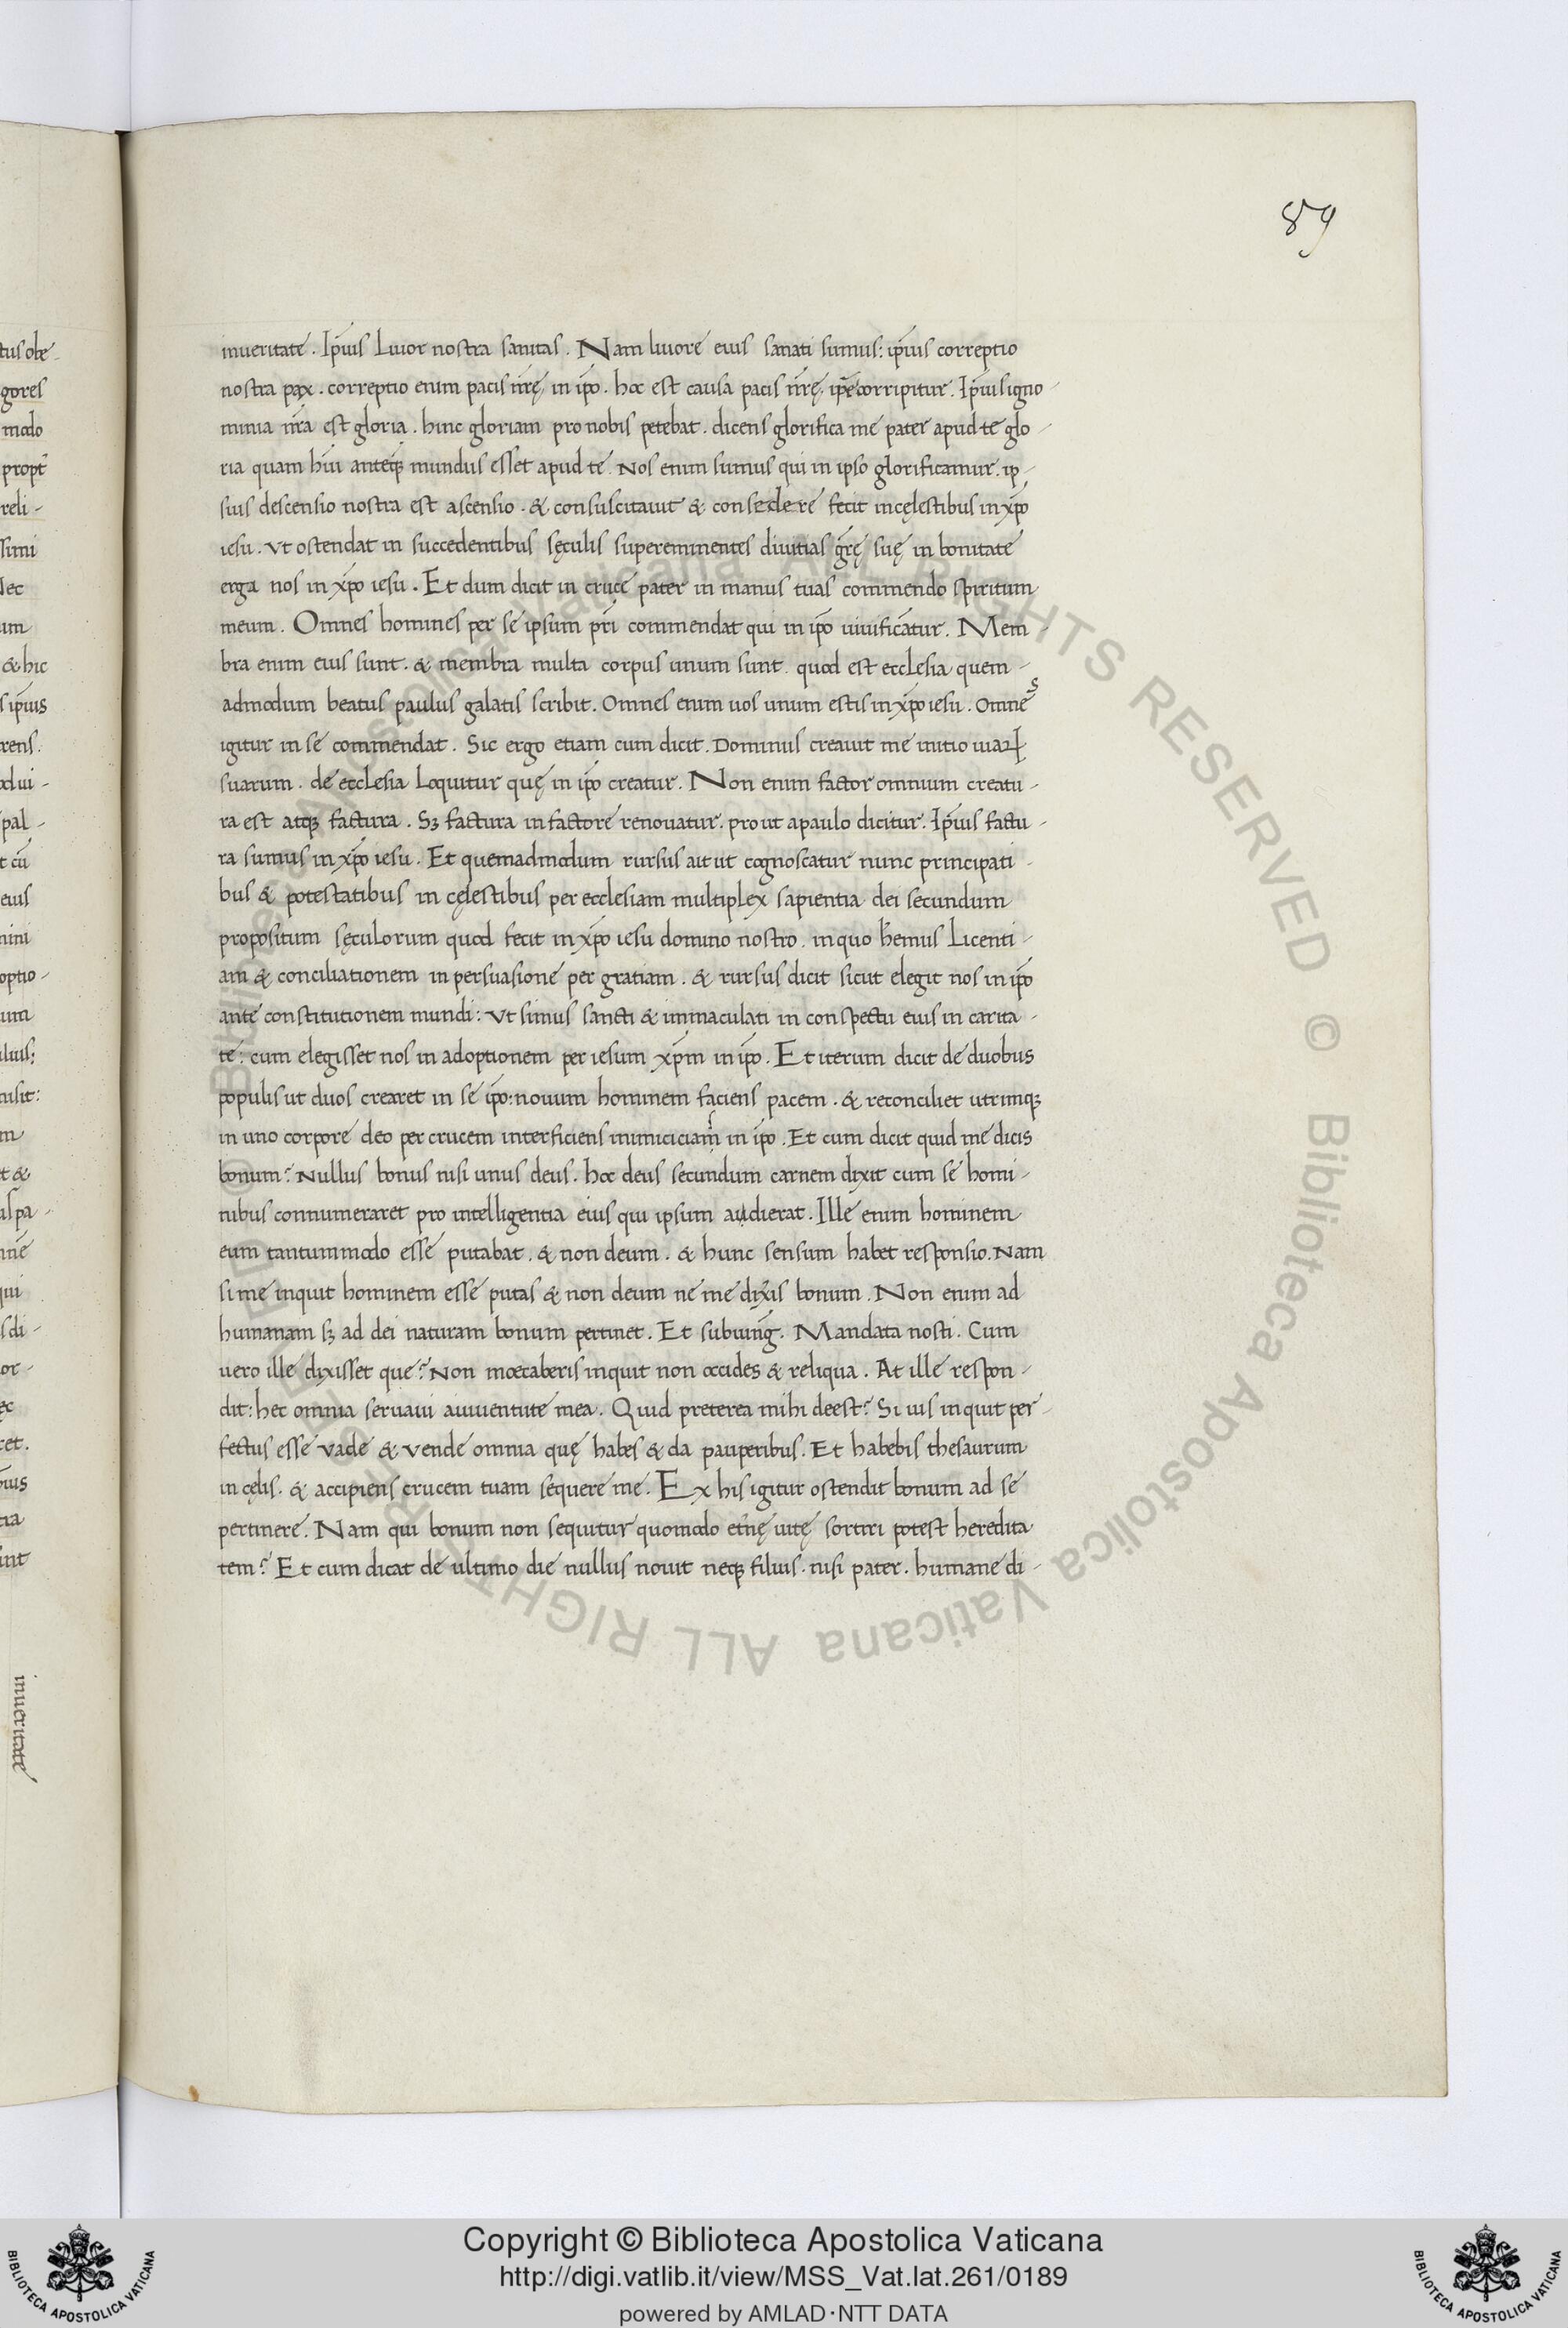 89
inueritate . Ip̄ius Liuor nostra sanitas . Nam liuore eius sanati sumus: ip̄ius correptio
nostra pax . correptio enim pacis nr̄ę, in ip̄o . hoc est causa pacis nr̄ę. ip̄e corripitur . Ip̄ius igno-
minia nr̄a est gloria . hinc gloriam pro nobis petebat . dicens glorifica me pater apud te glo-
ria quam h̄ui anteq̄ꝫ mundus esset apud te . Nos enim sumus qui in ipso glorificamur . ip-
sius descensio nostra est ascensio . & consuscitauit & consedere fecit in cęlestibus in xp̄o
iesu . Vt ostendat in succedentibus sęculis supereminentes diuitias gr̄ę suę in bonitate
erga nos in xp̄o iesu . Et dum dicit in cruce pater in manus tuas commendo spiritum
meum . Omnes homines per se ipsum pr̄i commendat qui in ip̄o uiuificātur . Mem-
bra enim eius sunt . & membra multa corpus unum sunt . quod est ecclesia quem-
admodum beatus paulus galatis scribit . Omnes enim uos unum estis in xp̄o iesu . Omnes
igitur in se commendat . Sic ergo etiam cum dicit . Dominus creauit me initio uiaꝝ
suarum . de ecclesia Loquitur quę in ip̄o creatur . Non enim factor omnium creatu-
ra est atqꝫ factura . Sꝫ factura in factore renouatur . prout apaulo dicitur . Ip̄ius factu-
ra sumus in xp̄o iesu . Et quemadmodum rursus ait ut cognoscatur nunc principati-
bus & potestatibus in cęlestibus per ecclesiam multiplex sapientia dei secundum
propositum sęculorum quod fecit in xp̄o iesu domino nostro . in quo h̄emus Licenti-
am & conciliationem in persuasione per gratiam . & rursus dicit sicut elegit nos in ip̄o
ante constitutionem mundi : Vt simus sancti & immaculati in conspectu eius in carita-
te : cum elegisset nos in adoptionem per iesum xp̄m in ip̄o . Et iterum dicit de duobus
populis ut duos crearet in se ip̄o: nouum hominem faciens pacem . & reconciliet utrimqꝫ
in uno corpore deo per crucem interficiens inimiciciam in ip̄o . Et cum dicit quid me dicis
bonum? Nullus bonus nisi unus deus . hoc deus secundum carnem dixit cum se homi-
nibus connumeraret pro intelligentia eius qui ipsum audierat . Ille enim hominem
eum tantummodo esse putabat . & non deum . & hunc sensum habet responsio . Nam
si me inquit hominem esse putas & non deum ne me dixis bonum . Non enim ad
humanam sꝫ ad dei naturam bonum pertinet . Et subiung̃ . Mandata nosti . Cum
uero ille dixisset que? Non moecaberis inquit non occides & reliqua . At ille respon-
dit: hec omnia seruaui aiuuentute mea . Quid preterea mihi deest? Si uis inquit per-
fectus esse vade & vende omnia quę habes & da pauperibus . Et habebis thesaurum
in cęlis . & accipiens crucem tuam sequere me . Ex his igitur ostendit bonum ad se
pertinere . Nam qui bonum non sequitur quomodo et̄nę uitę sortiri potest heredita
tem? Et cum dicat de ultimo die nullus nouit neqꝫ filius . nisi pater . humane di-
inueritate
Copyright © Biblioteca Apostolica Vaticana
http://digi.vatlib.it/view/MSS_Vat.lat.261/0189
powered by AMLAD·NTT DATA